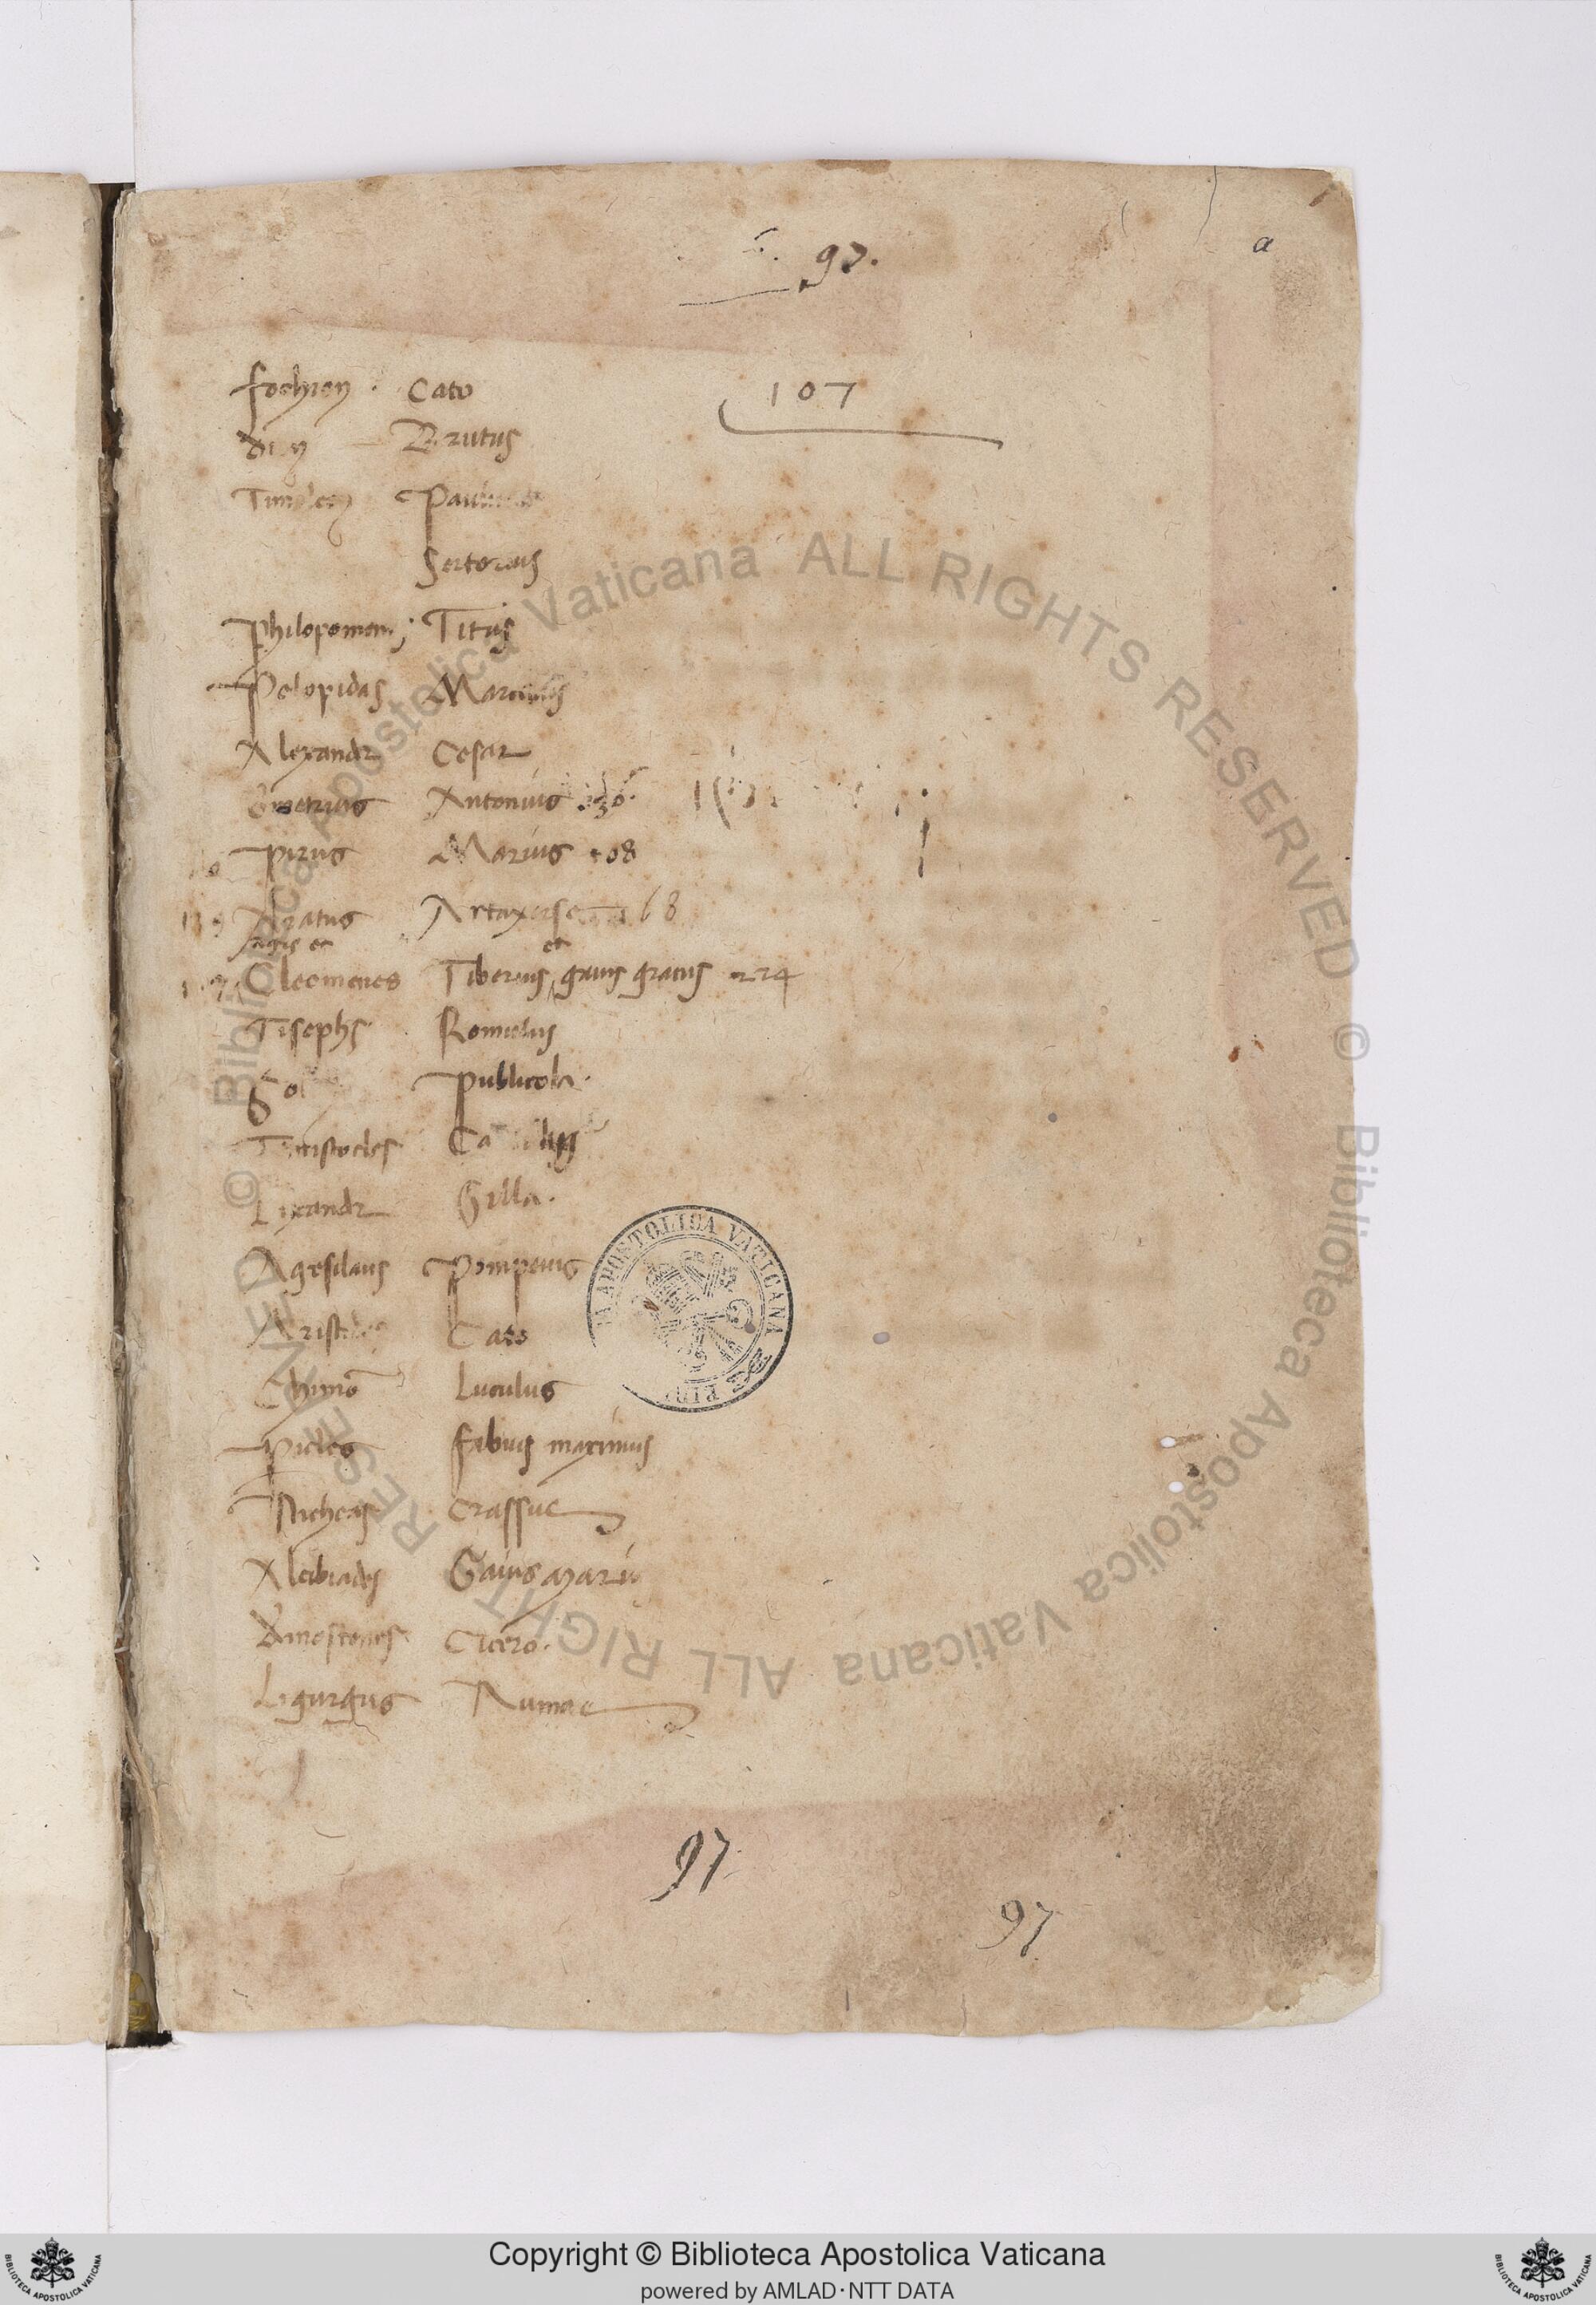 a
97.
107
fochion . Cato
dion Brutus
Timoleon Paulus
Sertorius
Philopomen; Titus
Pelopidas Marcellus
Alexandr Cesar
Antonius 236.
Pirus Marius 208
Aratus Artaxerse 168
agis et et
Cleomenes Tiberius gaius gracus 224
Tisephs Romulus
Publicola.
Temistocles Camillus
Lixandr Silla.
Agesilaus Pompeius
Aristides Cato
Chimo Luculus
Picles fabius maximus
Nicheas Crassus
Alcibiades Gaius Marius
Dmostones Cicero.
Ligurgus Numa
97
97
APOSTOLICA VATICANA
© Biblioteca Apostolica Vaticana ALL RIGHTS RESERVED
© Biblioteca Apostolica Vaticana ALL RIGHTS RESERVED
Copyright © Biblioteca Apostolica Vaticana
powered by AMLAD·NTT DATA
BIBLIOTECA APOSTOLICA VATICANA
BIBLIOTECA APOSTOLICA VATICANA